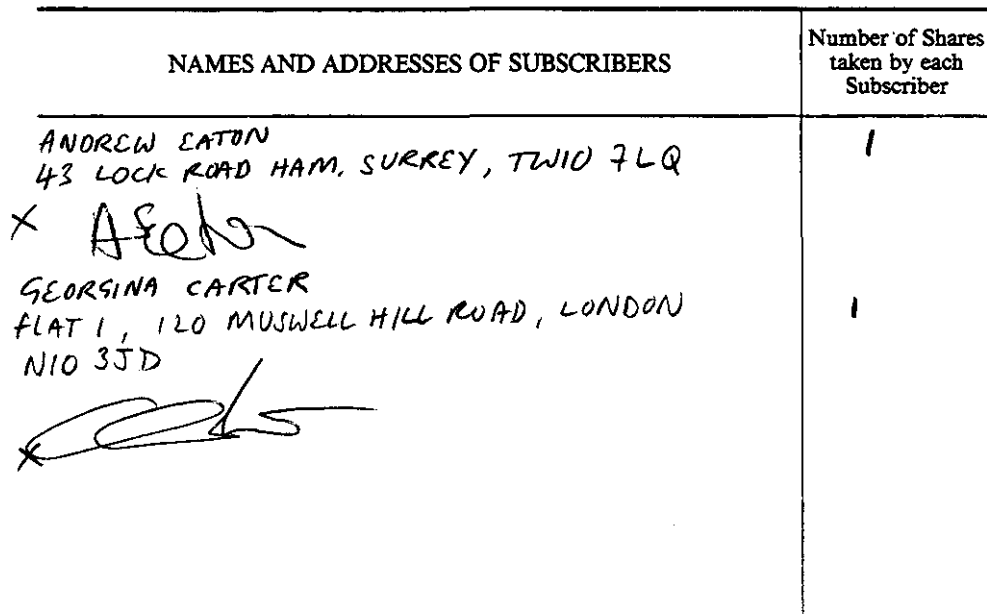 NAMES AND ADDRESSES OF SUBSCRIBERS
Number of Shares
taken by each
Subscriber
ANDREW EATON
1
43 LOCK ROAD HAM. SURREY, TW10 7LQ
X AEaton
GEORGINA CARTER
FLAT 1, 120 MUSWELL HILL ROAD, LONDON
1
N10 3JD
X